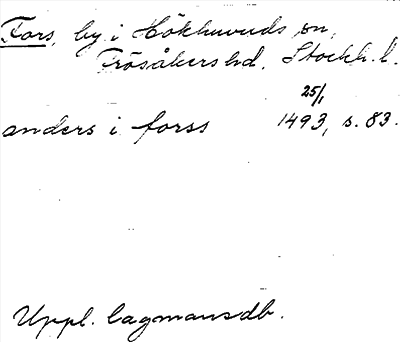 Fors, by i Hökhuvuds sn,
Frösåkers hd, Stockh. l.
25/1
anders i forss 1493, s. 83.
Uppl. lagmansdb.